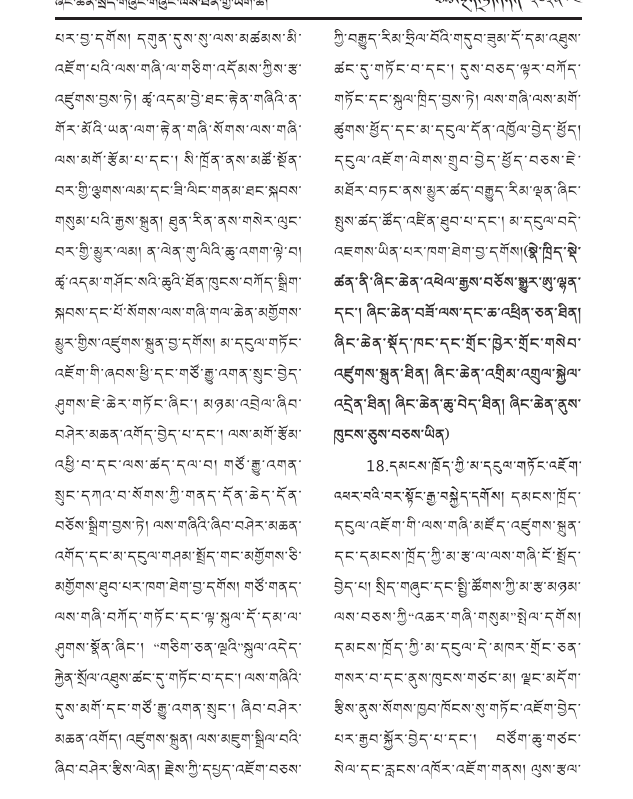 པར་བྱ་དགོས། དགུན་དུས་སུ་ལས་མཚམས་མི་
འཇོག་པའི་ལས་གཞི་ལ་གཅིག་འདོམས་ཀྱིས་རྩ་
འཛུགས་བྱས་ཏེ། ཚྭ་འདམ་བྱེ་ཐང་རྟེན་གཞིའི་ན་
གོར་མོའི་ཡན་ལག་རྟེན་གཞི་སོགས་ལས་གཞི་
ལས་མགོ་རྩོམ་པ་དང་། སི་ཁྲོན་ནས་མཚོ་སྔོན་
བར་གྱི་ལྕགས་ལམ་དང་ཟི་ལིང་གནམ་ཐང་སྐབས་
གསུམ་པའི་རྒྱས་སྐྲུན། ཐུན་རིན་ནས་གསེར་ལུང་
བར་གྱི་མྱུར་ལམ། ན་ལེན་གུ་ལིའི་ཆུ་འགག་ལྟེ་བ།
ཚྭ་འདམ་གཤོང་སའི་ཆུའི་ཐོན་ཁུངས་བཀོད་སྒྲིག་
སྐབས་དང་པོ་སོགས་ལས་གཞི་གལ་ཆེན་མགྱོགས་
མྱུར་གྱིས་འཛུགས་སྐྲུན་བྱ་དགོས། མ་དངུལ་གཏོང་
འཇོག་གི་ཞབས་ཕྱི་དང་གཙོ་རྒྱུ་འགན་སྲུང་བྱེད་
ཤུགས་ཇེ་ཆེར་གཏོང་ཞིང་། མཉམ་འབྲེལ་ཞིབ་
བཤེར་མཆན་འགོད་བྱེད་པ་དང་། ལས་མགོ་རྩོམ་
འཕྱི་བ་དང་ལས་ཚད་དལ་བ། གཙོ་རྒྱུ་འགན་
སྲུང་དཀའ་བ་སོགས་ཀྱི་གནད་དོན་ཆེད་དོན་
བཅོས་སྒྲིག་བྱས་ཏེ། ལས་གཞིའི་ཞིབ་བཤེར་མཆན་
འགོད་དང་མ་དངུལ་གཤམ་སྤྲོད་གང་མགྱོགས་ཅི་
མགྱོགས་ཐུབ་པར་ཁག་ཐེག་བྱ་དགོས། གཙོ་གནད་
ལས་གཞི་བཀོད་གཏོང་དང་ལྟ་སྐུལ་དོ་དམ་ལ་
ཤུགས་སྣོན་ཞིང་། “གཅིག་ཅན་ལྔའི”སྐུལ་འདེད་
རྐྱེན་སྲོལ་འཐུས་ཚང་དུ་གཏོང་བ་དང་། ལས་གཞིའི་
དུས་མགོ་དང་གཙོ་རྒྱུ་འགན་སྲུང་། ཞིབ་བཤེར་
མཆན་འགོད། འཛུགས་སྐྲུན། ལས་མཇུག་སྒྲིལ་བའི་
ཞིབ་བཤེར་རྩིས་ལེན། རྗེས་ཀྱི་དཔྱད་འཇོག་བཅས་
ཀྱི་བརྒྱུད་རིམ་ཧྲིལ་བོའི་གདུབ་ཟུམ་དོ་དམ་འཐུས་
ཚང་དུ་གཏོང་བ་དང་། དུས་བཅད་ལྟར་བཀོད་
གཏོང་དང་སྐུལ་ཁྲིད་བྱས་ཏེ། ལས་གཞི་ལས་མགོ་
ཚུགས་ཕྱོད་དང་མ་དངུལ་དོན་འཁྱོལ་བྱེད་ཕྱོད།
དངུལ་འཇོག་ལེགས་གྲུབ་བྱེད་ཕྱོད་བཅས་ཇེ་
མཐོར་བཏང་ནས་མྱུར་ཚད་བརྒྱུད་རིམ་ལྡན་ཞིང་
སྤུས་ཚད་ཚོད་འཛིན་ཐུབ་པ་དང་། མ་དངུལ་བདེ་
འཇགས་ཡིན་པར་ཁག་ཐེག་བྱ་དགོས།(སྣེ་ཁྲིད་སྡེ་
ཚན་ནི་ཞིང་ཆེན་འཕེལ་རྒྱས་བཅོས་སྒྱུར་ཨུ་ལྷན་
དང་། ཞིང་ཆེན་བཟོ་ལས་དང་ཆ་འཕྲིན་ཅན་ཐིན།
ཞིང་ཆེན་སྡོད་ཁང་དང་གྲོང་ཁྱེར་གྲོང་གསེབ་
འཛུགས་སྐྲུན་ཐིན། ཞིང་ཆེན་འགྲིམ་འགྲུལ་སྐྱེལ་
འདྲེན་ཐིན། ཞིང་ཆེན་ཆུ་བེད་ཐིན། ཞིང་ཆེན་ནུས་
ཁུངས་ཅུས་བཅས་ཡིན)
18.དམངས་ཁྲོད་ཀྱི་མ་དངུལ་གཏོང་འཇོག་
འཕར་བའི་བར་སྟོང་རྒྱ་བསྐྱེད་དགོས། དམངས་ཁྲོད་
དངུལ་འཇོག་གི་ལས་གཞི་མཛོད་འཛུགས་སྐྲུན་
དང་དམངས་ཁྲོད་ཀྱི་མ་རྩ་ལ་ལས་གཞི་ངོ་སྤྲོད་
བྱེད་པ། སྲིད་གཞུང་དང་སྤྱི་ཚོགས་ཀྱི་མ་རྩ་མཉམ་
ལས་བཅས་ཀྱི“འཆར་གཞི་གསུམ”སྤེལ་དགོས།
དམངས་ཁྲོད་ཀྱི་མ་དངུལ་དེ་མཁར་གྲོང་ཅན་
གསར་བ་དང་ནུས་ཁུངས་གཙང་མ། ལྗང་མདོག་
རྩིས་ནུས་སོགས་ཁྱབ་ཁོངས་སུ་གཏོང་འཇོག་བྱེད་
པར་རྒྱབ་སྐྱོར་བྱེད་པ་དང་། བཙོག་ཆུ་གཙང་
སེལ་དང་རླངས་འཁོར་འཇོག་གནས། ལུས་རྩལ་